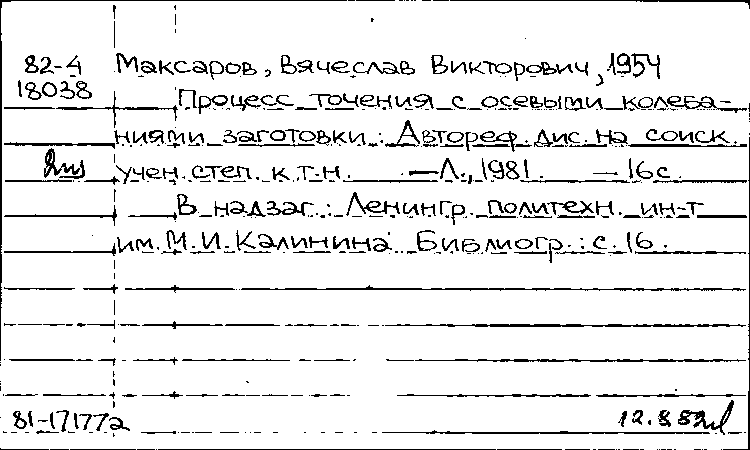 82-4 Максаров, Вячеслав Викторович, 1954
18038 Процесс точения с осевыми колеба-
ниями заготовки : Автореф. дис. на соиск.
учен. степ. к.т.н. — Л., 1981. — 16 с.
В надзаг.: Ленингр. политехн. ин-т
им. М.И. Калинина Библиогр.: с. 16.
81-171772 12.8.82